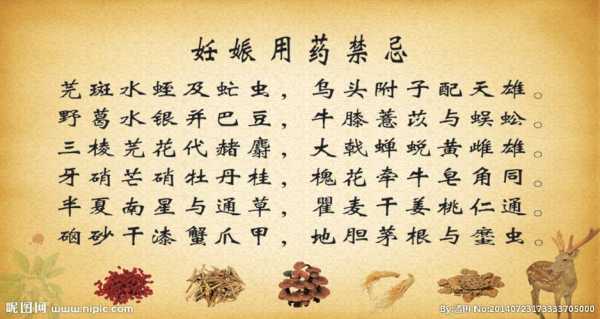 妊娠用药禁忌
芫斑水蛭及虻虫，乌头附子配天雄。
野葛水银并巴豆，牛膝薏苡与蜈蚣。
三棱芫花代赭麝，大戟蝉蜕黄雌雄。
牙硝芒硝牡丹桂，槐花牵牛皂角同。
半夏南星与通草，瞿麦干姜桃仁通。
硇砂干漆蟹爪甲，地胆茅根与䗪虫。
昵图网 www.nipic.com
No:20140723173333705000